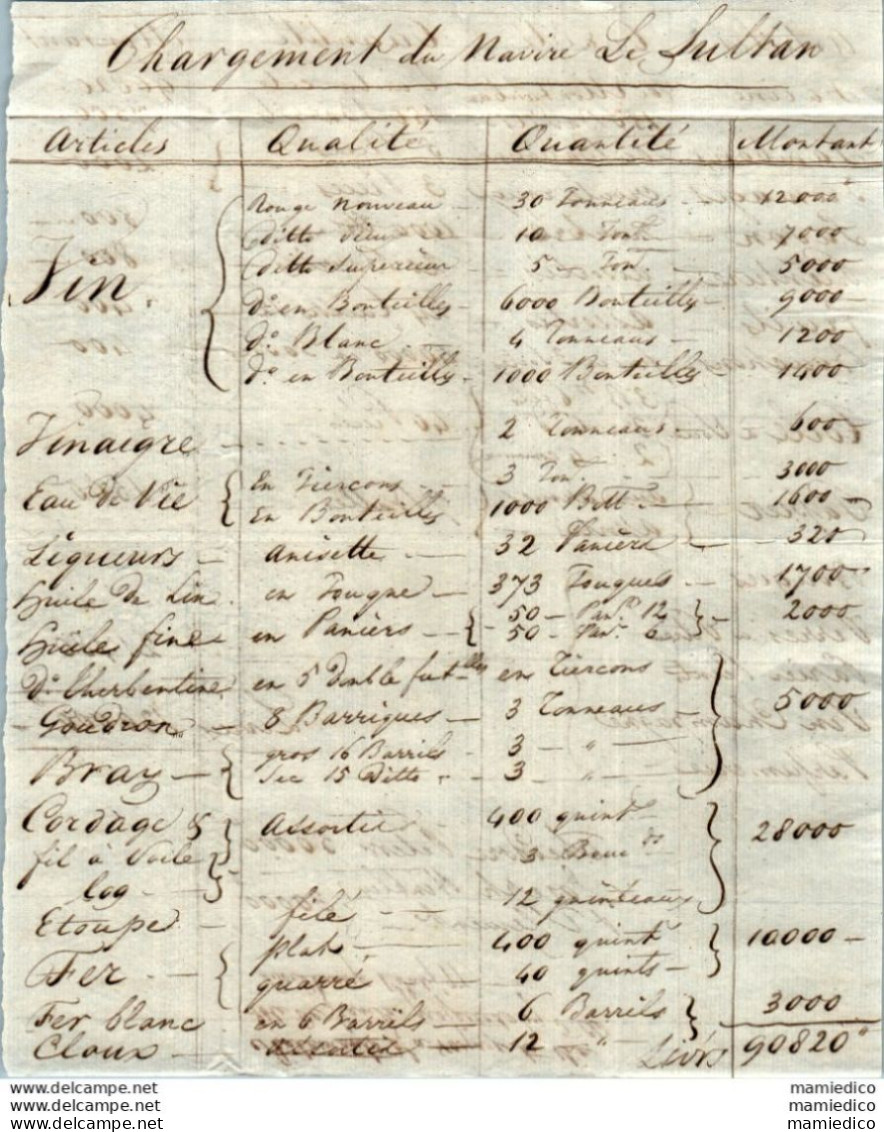 Chargement du Navire Le Sultan
Articles Qualité Quantité Montant
Rouge Nouveau 30 Tonneaux 12000
Ditto vieu 10 Tonx 7000
Ditto Superieur 5 Ton 5000
Vin
do en Bouteilles 6000 Bouteilles 9000
do Blanc 4 Tonneaux 1200
do en Bouteilles 1000 Bouteilles 1400
Vinaigre 2 Tonneaux 600
Eau de Vie En Tierçons 3 Ton. 3000
En Bouteilles 1000 Boutt. 1600
Liqueurs Anisette 32 Paniers 320
Huile de Lin en Fouque 373 Fouques 1700
Huile fine en Paniers 50 Panrs 12 2000
50 Panr 6
do Therbentine en 5 double en Tierçons
Goudron 8 Barriques 3 Tonneaux 5000
Bray gros 16 Barrils 3 "
Sec 15 Ditto 3 "
Cordage & Assortie 400 quint 28000
fil à Voile 3
12 quinteaux
Etoupe filé
Fer plat 400 quint 10000
quarré 40 quints
Fer blanc en 6 Barrils 6 Barrils 3000
Cloux 12 " Livrs 90820
mamiedico mamiedico
mamiedico mamiedico
www.delcampe.net mamiedico